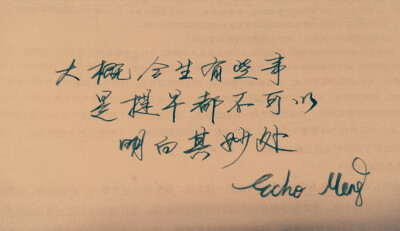 大概今生有些事
是提早都不可以
明白其妙处
Echo Meng